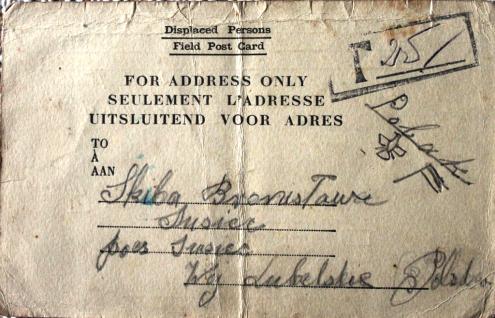 Displaced Persons
Field Post Card
T 25/
FOR ADDRESS ONLY
SEULEMENT L'ADRESSE
UITSLUITEND VOOR ADRES
TO
À
AAN
Skiba Bronisława
Susiec
pocs Susiec
Wj Lubelskie